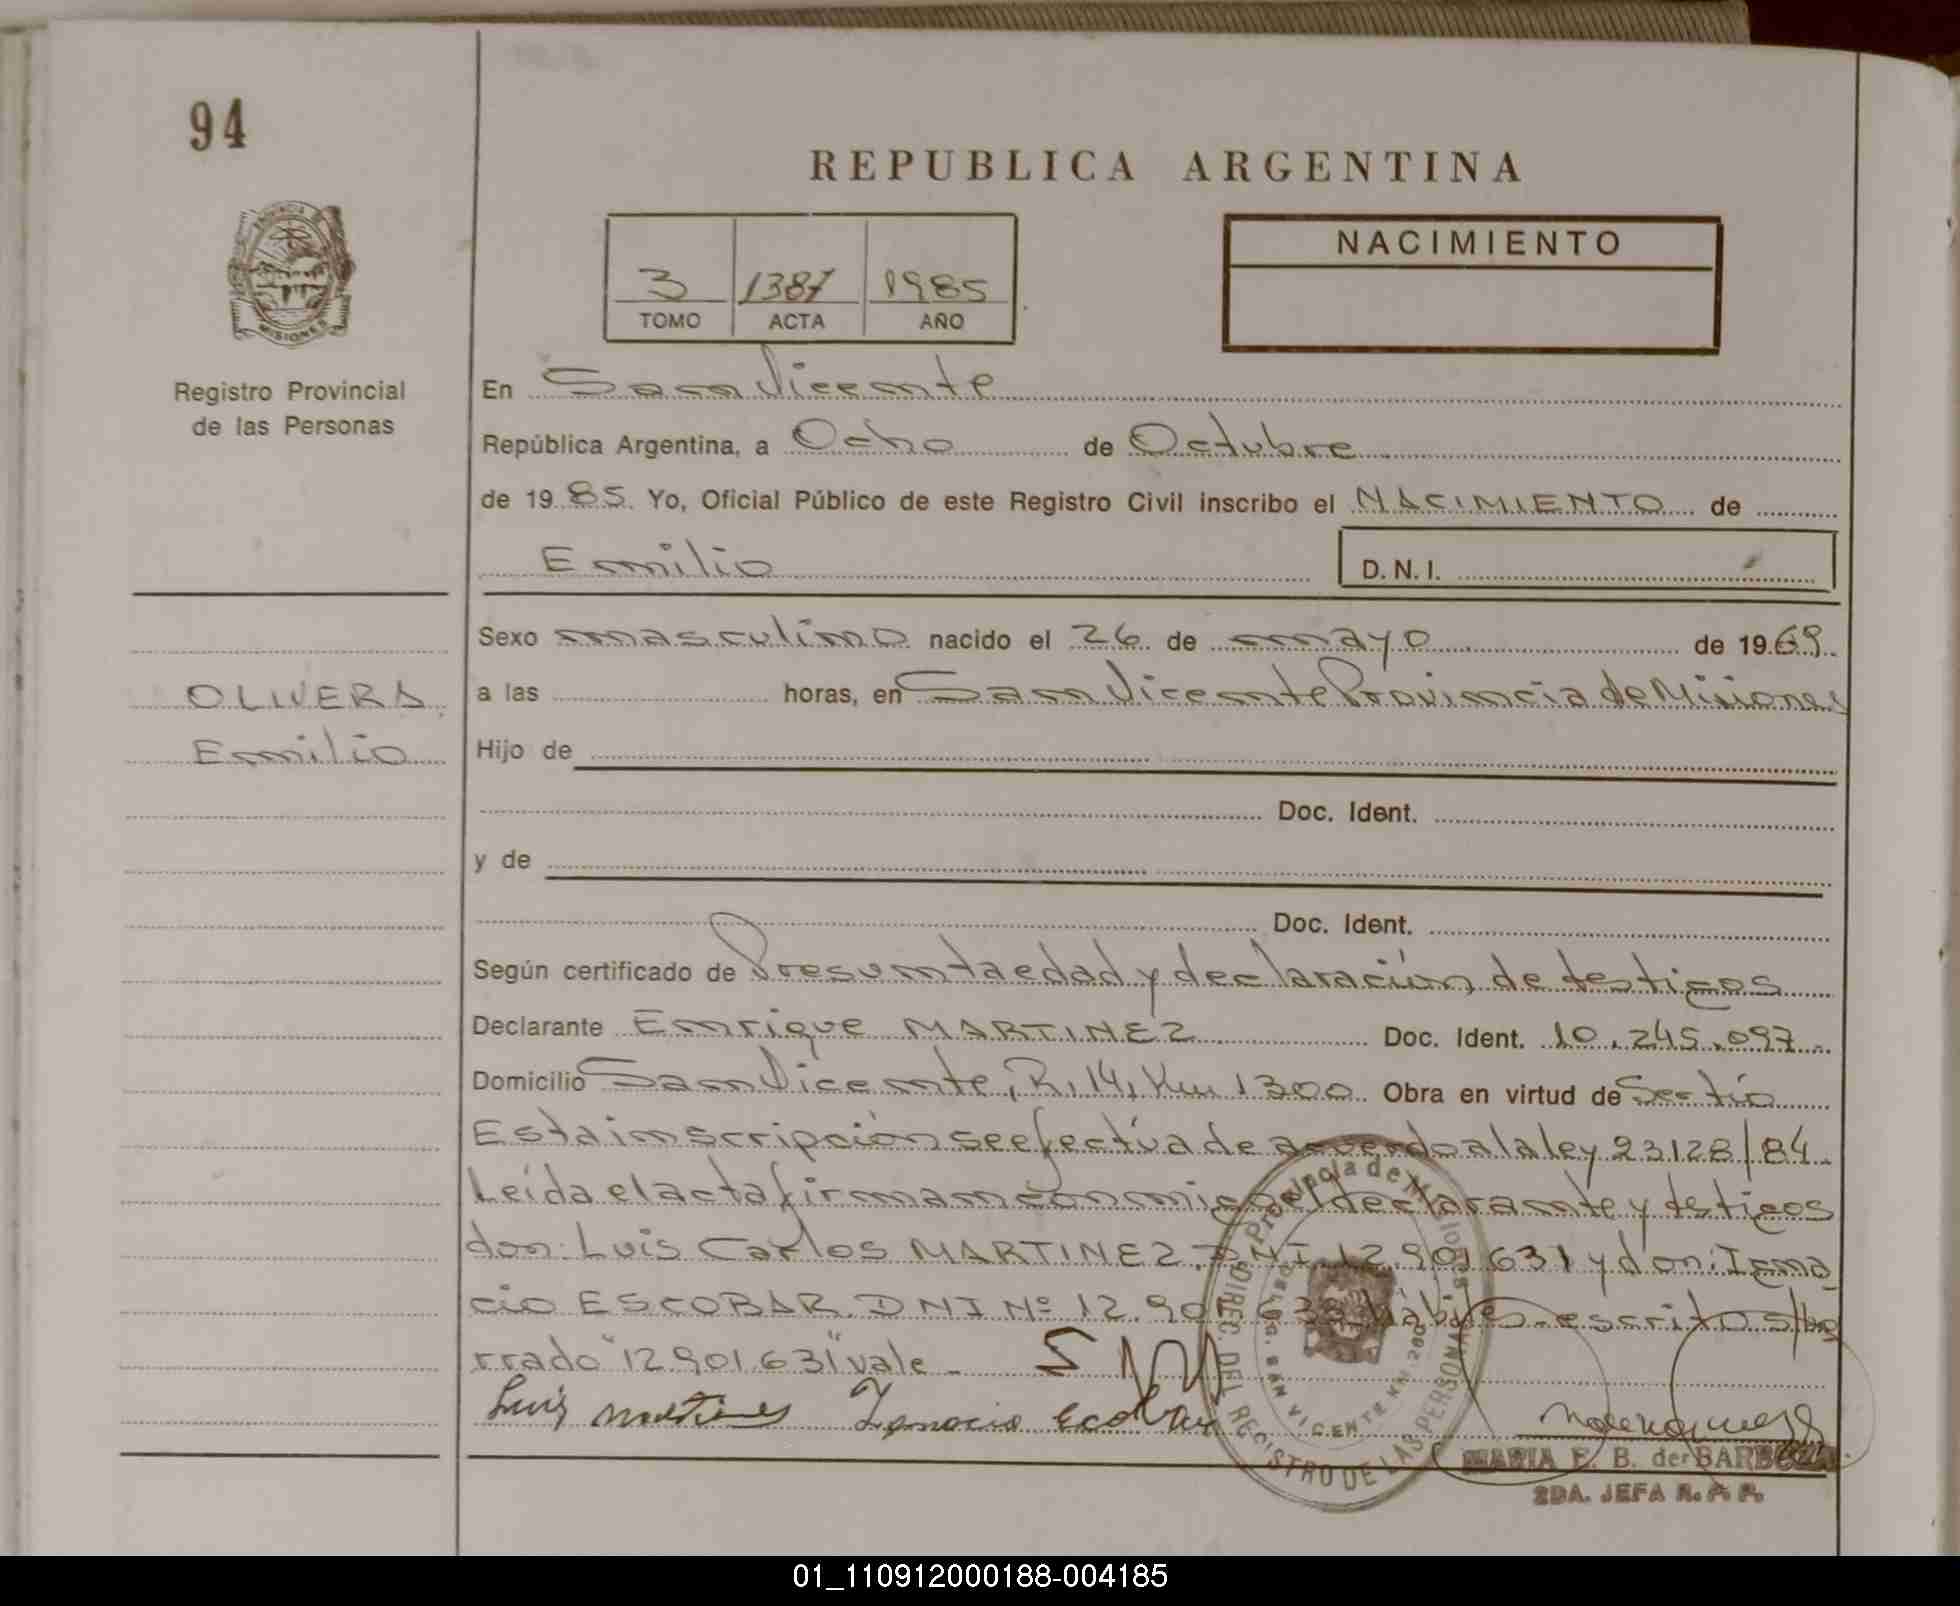 94
REPUBLICA ARGENTINA
PROVINCIA
MISIONES
3 1387 1985
TOMO ACTA AÑO
NACIMIENTO
Registro Provincial
de las Personas
En San Vicente
República Argentina, a Ocho de Octubre
de 1985. Yo, Oficial Público de este Registro Civil inscribo el NACIMIENTO de
Emilio
D.N.I.
Sexo masculino nacido el 26 de mayo de 1969.
OLIVERA
Emilio
a las horas, en San Vicente Provincia de Misiones
Hijo de
Doc. Ident.
y de
Doc. Ident.
Según certificado de Presunta edad y declaración de testigos
Declarante Enrique MARTINEZ Doc. Ident. 10.245.097
Domicilio San Vicente, R. 14, Km 1300 Obra en virtud de Sertio
Esta inscripción se efectúa de acuerdo a la ley 23128/84.
Leída el acta firman conmigo el declarante y testigos
don: Luis Carlos MARTINEZ. DNI. 12.901631 y don: Igna
cio ESCOBAR. DNI Nº 12.901.638 hábiles - escrito s/bo
rrado "12.901.631" vale -
Luis Martines Ignacio Escobar
DIREC. DEL REGISTRO DE LAS PERSONAS
Provincia de Misiones
DELEG. SAN VICENTE KM 280
MARIA E. B. de BARBOZA
2DA. JEFA R. P. P.
01_110912000188-004185